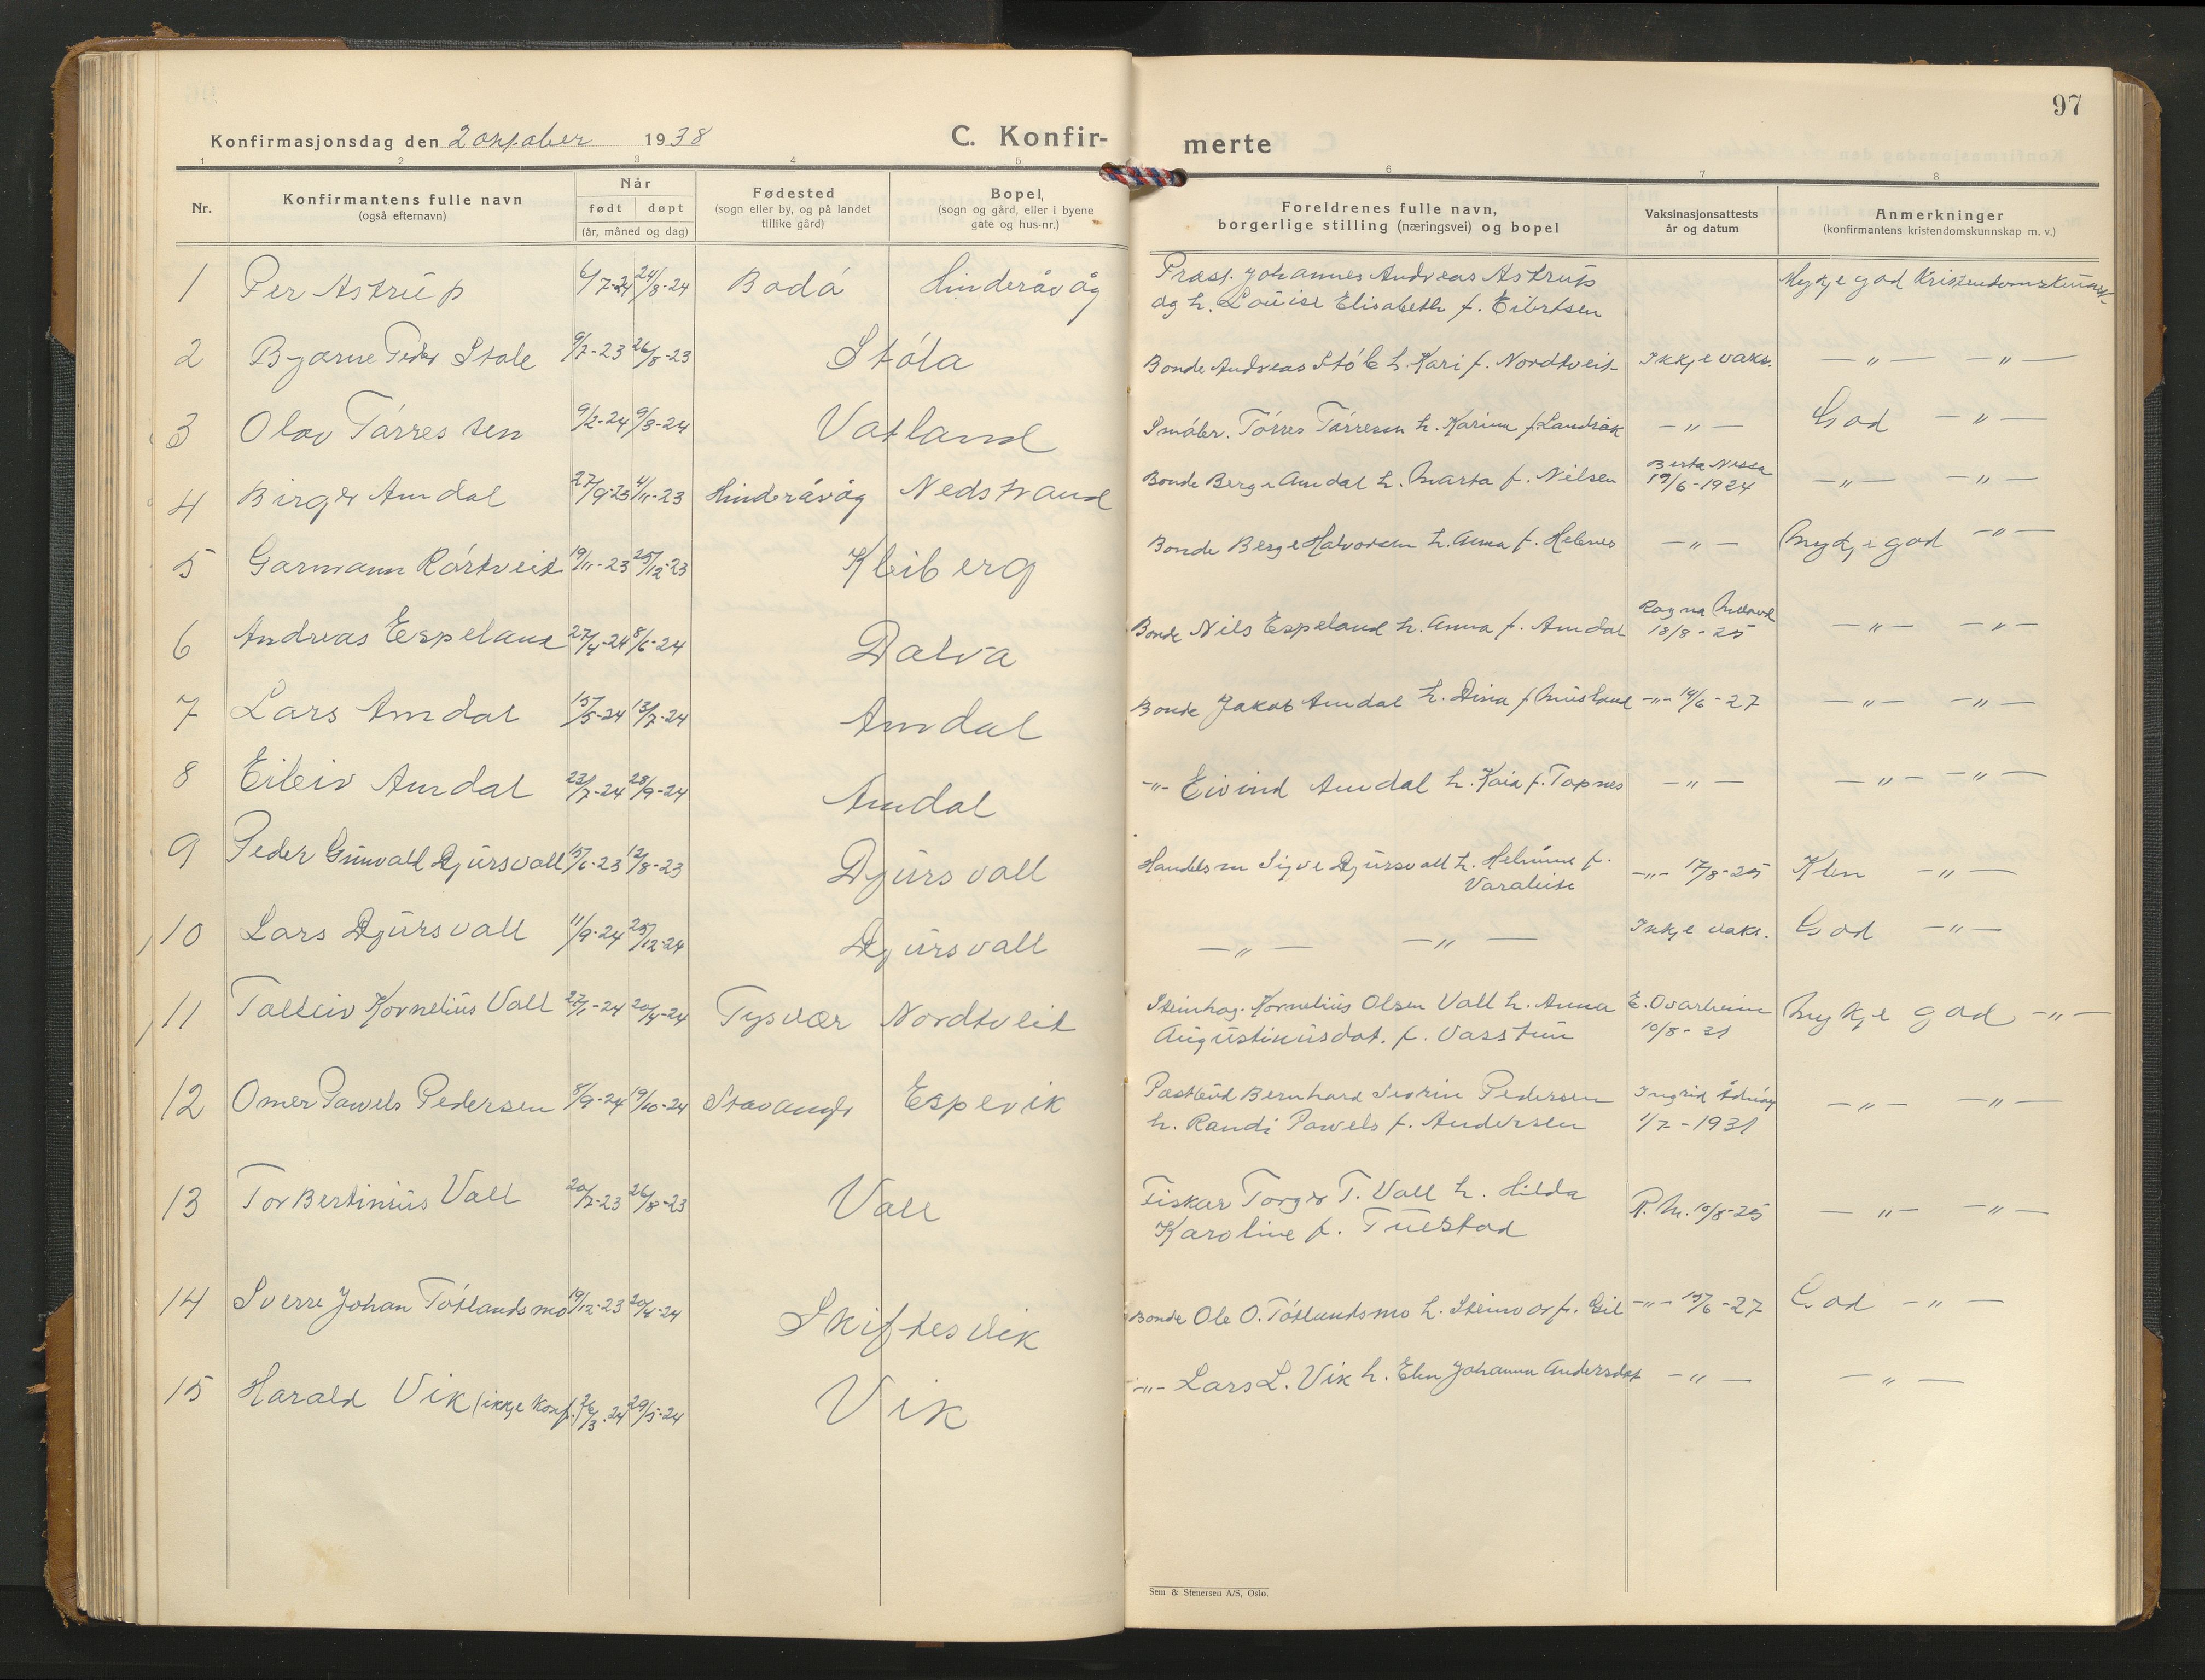 97
Konfirmasjonsdag den 2 oktober 1938
C. Konfir-
merte
1 2 3 4 5 6 7 8
Nr.
Konfirmantens fulle navn
(også efternavn)
Når
født døpt
(år, måned og dag)
Fødested
(sogn eller by, og på landet
tillike gård)
Bopel,
(sogn og gård, eller i byene
gate og hus-nr.)
Foreldrenes fulle navn,
borgerlige stilling (næringsvei) og bopel
Vaksinasjonsattests
år og datum
Anmerkninger
(konfirmantens kristendomskunnskap m. v.)
1 Per Astrup 6/7-24 24/8-24 Bodó Hinderåvåg Prest. Johannes Andreas Astrup Mykje god Kristendomskunnsk-
og h. Louise Elisabeth f. Eilertsen
2 Bjarne Peder Stole 9/7-23 26/8-23 Stóla Bonde Andreas Stóle h. Kari f. Nordtveit Ikkje vaks. — " — — " —
3 Olav Tórressen 9/2-24 9/3-24 Vatland Småbr. Tórres Tórresen h. Karina f. Landråk — " — God — " —
4 Birger Amdal 27/9-23 4/11-23 Hinderåvåg Nedstrand Bonde Berge Amdal h. Marta f. Nilsen Berta Nessa 19/6-1924 — " — — " —
5 Garmann Rórtveit 19/11-23 25/12-23 Kleiberg Bonde Berge Halvorsen h. Anna f. Helenes — " — Mykje god — " —
6 Andreas Espeland 27/4-24 8/6-24 Dalva Bonde Nils Espeland h. Anna f. Amdal Ragna 18/8-25 — " — — " —
7 Lars Amdal 15/5-24 13/7-24 Amdal Bonde Jakob Amdal h. Dina f. Musland - " - 14/6-27 — " — — " —
8 Eileiv Amdal 23/7-24 28/9-24 Amdal - " - Eivind Amdal h. Kaia f. Topnes — " — — " — — " —
9 Peder Gunvald Djursvoll 15/6-23 12/8-23 Djursvoll Handelsm Sigve Djursvoll h. Helmine f. - " - 17/8-25 Klen — " —
10 Lars Djursvoll 11/9-24 25/12-24 Djursvoll — " — — " — Inkje vaks. God — " —
11 Tolleiv Kornelius Voll 27/1-24 20/4-24 Tysvær Nordtveit Steinhog. Kornelius Olsen Voll h. Anna E. Ovarheim Mykje god - " -
Augustinusdot. f. Vasstun 10/8-31
12 Omer Powels Pedersen 8/9-24 19/10-24 Stavanger Espevik Postbud Bernhard Severin Pedersen Ingrid — " — — " —
h. Randi Powels f. Andersen 1/7-1931
13 Tor Bertinius Voll 20/7-23 26/8-23 Voll Fiskar Torger T. Voll h. Hilda R. M. 10/8-25 — " — — " —
Karoline f. Tuestad
14 Sverre Johan Tótlandsmo 19/12-23 20/4-24 Skiftesvik Bonde Ole O. Tótlandsmo h. Steinvor f. Gil - " - 15/6-27 God — " —
15 Harald Vik (ikkje konf.) 26/3.24 29/5-24 Vik - " - Lars L. Vik h. Elen Johanna Andersdot — " — — " —
Sem & Stenersen A/S, Oslo.